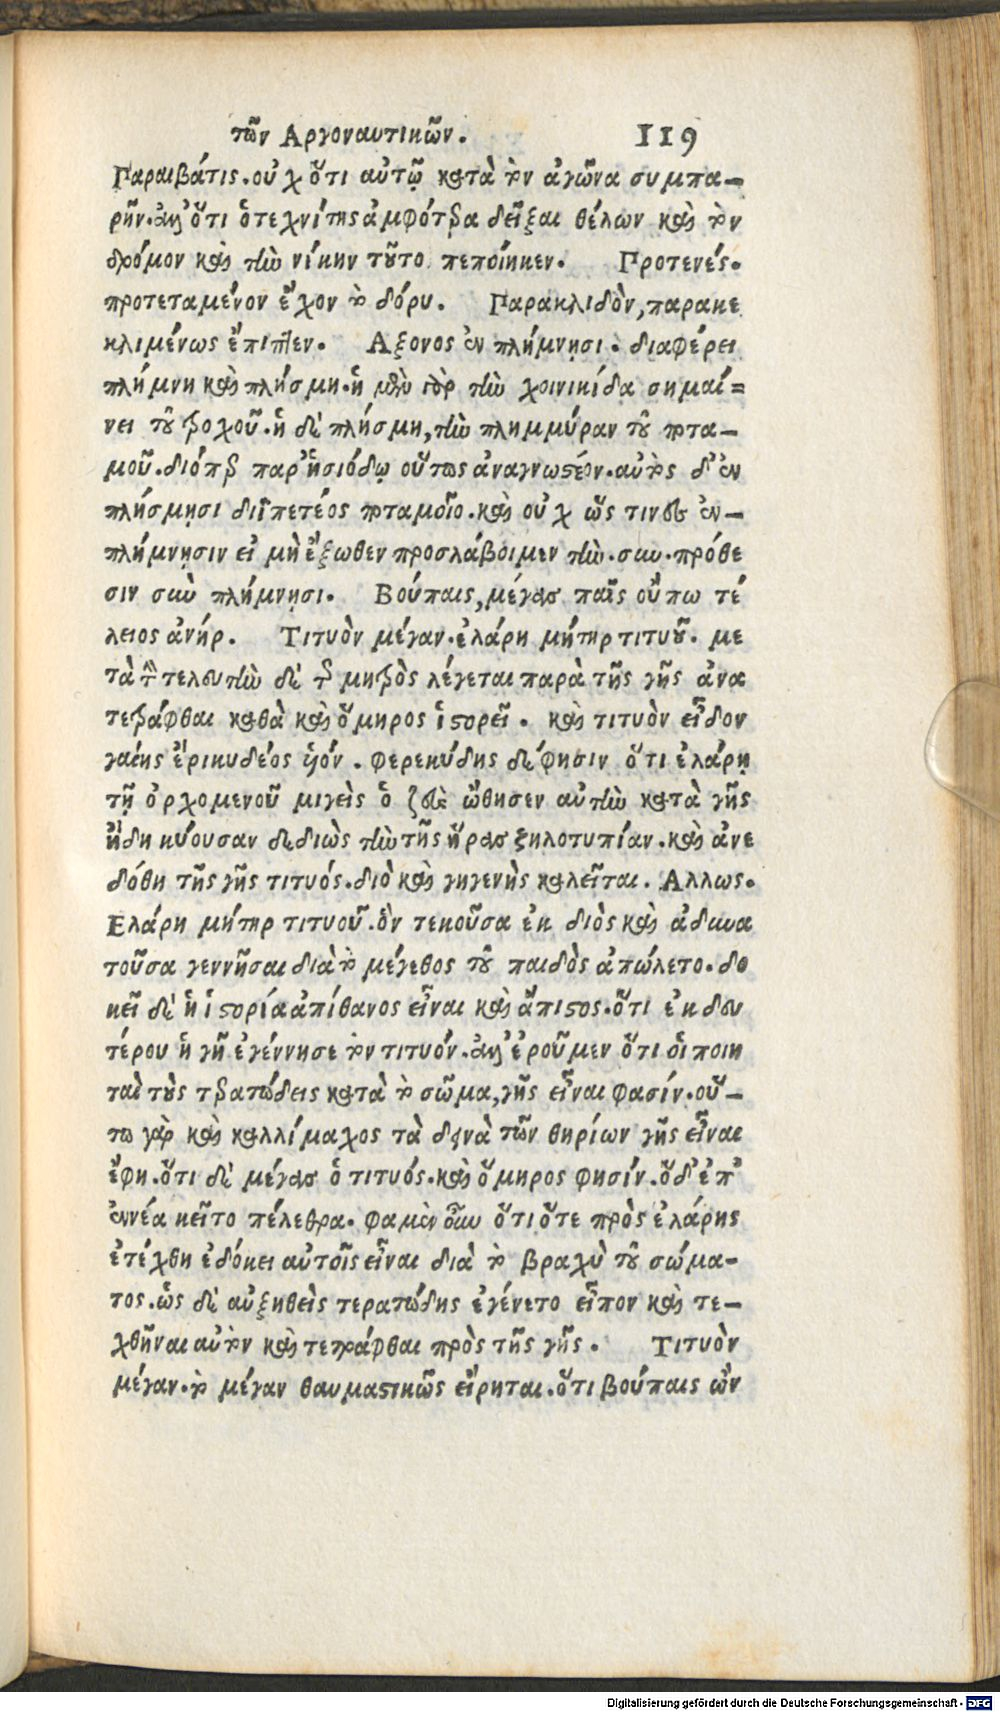 τῶν Αργοναυτικῶν. 119
Παραιβάτις. οὐχ ὅτι αὐτῷ κατὰ τὸν ἀγῶνα συμπα-
ρῆν. ἀλλ' ὅτι ὁ τεχνίτης ἀμφότερα δεῖξαι θέλων καὶ τὸν
δρόμον καὶ τὴν νίκην τοῦτο πεποίηκεν. Προτενές.
προτεταμένον ἔχον τὸ δόρυ. Παρακλιδὸν, παρακε
κλιμένως ἔπιπτεν. Αξονος ἐν πλήμνησι. διαφέρει
πλήμνη καὶ πλήσμη. ἡ μὲν γὰρ τὴν χοινικίδα σημαί=
νει τοῦ τροχοῦ. ἡ δὲ πλήσμη, τὴν πλημμύραν τοῦ ποτα-
μοῦ. διόπερ παρ' ἡσιόδῳ οὕτως ἀναγνωστέον. αὐτὸς δ' ἐν
πλήσμησι διϊπετέος ποταμοῖο. καὶ οὐχ ὥς τινες ἐν-
πλήμνησιν εἰ μὴ ἔξωθεν προσλάβοιμεν τὴν. σὺν. πρόθε
σιν σὺν πλήμνησι. Βούπαις, μέγας παῖς οὔπω τέ
λειος ἀνήρ. Τιτυὸν μέγαν. ἐλάρη μήτηρ τιτυοῦ. με
τὰ τὴν τελευτὴν δὲ τῆς μητρὸς λέγεται παρὰ τῆς γῆς ἀνα
τετράφθαι καθὰ καὶ ὅμηρος ἱστορεῖ. καὶ τιτυὸν εἶδον
γαίης ἐρικυδέος ὑιόν. φερεκύδης δέ φησιν ὅτι ἐλάρῃ
τῇ ὀρχομενοῦ μιγεὶς ὁ ζεὺς ὤθησεν αὐτὴν κατὰ γῆς
ἤδη κύουσαν δεδιὼς τὴν τῆς ἥρας ζηλοτυπίαν. καὶ ἀνε
δόθη τῆς γῆς τιτυός. διὸ καὶ γηγενὴς καλεῖται. Αλλως.
Ελάρη μήτηρ τιτυοῦ. ὃν τεκοῦσα ἐκ διὸς καὶ ἀδυνα
τοῦσα γεννῆσαι διὰ τὸ μέγεθος τοῦ παιδὸς ἀπώλετο. δο
κεῖ δὲ ἡ ἱστορία ἀπίθανος εἶναι καὶ ἄπιστος. ὅτι ἐκ δευ
τέρου ἡ γῆ ἐγέννησε τὸν τιτυόν. ἀλλ' ἐροῦμεν ὅτι οἱ ποιη
ταὶ τοὺς τερατώδεις κατὰ τὸ σῶμα, γῆς εἶναι φασίν. οὕ-
τω γὰρ καὶ καλλίμαχος τὰ δεινὰ τῶν θηρίων γῆς εἶναι
ἔφη. ὅτι δὲ μέγας ὁ τιτυός. καὶ ὅμηρος φησίν. ὁ δ' ἐπ'
ἐννέα κεῖτο πέλεθρα. φαμὲν οὖν ὅτι ὅτε πρὸς ἐλάρης
ἐτέχθη ἐδόκει αὐτοῖς εἶναι διὰ τὸ βραχὺ τοῦ σώμα-
τος. ὡς δὲ αὐξηθεὶς τερατώδης ἐγένετο εἶπον καὶ τε-
χθῆναι αὐτὸν καὶ τετράφθαι πρὸς τῆς γῆς. Τιτυὸν
μέγαν. τὸ μέγαν θαυμαστικῶς εἴρηται. ὅτι βούπαις ὢν
Digitalisierung gefördert durch die Deutsche Forschungsgemeinschaft - DFG